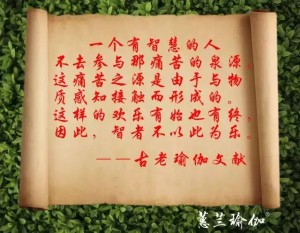 一个有智慧的人
不去参与那痛苦的泉源
这痛苦之源是由于与物
质感知接触而形成的。
这样的欢乐有始也有终，
因此，智者不以此为乐。
——古老瑜伽文献
蕙兰瑜伽®